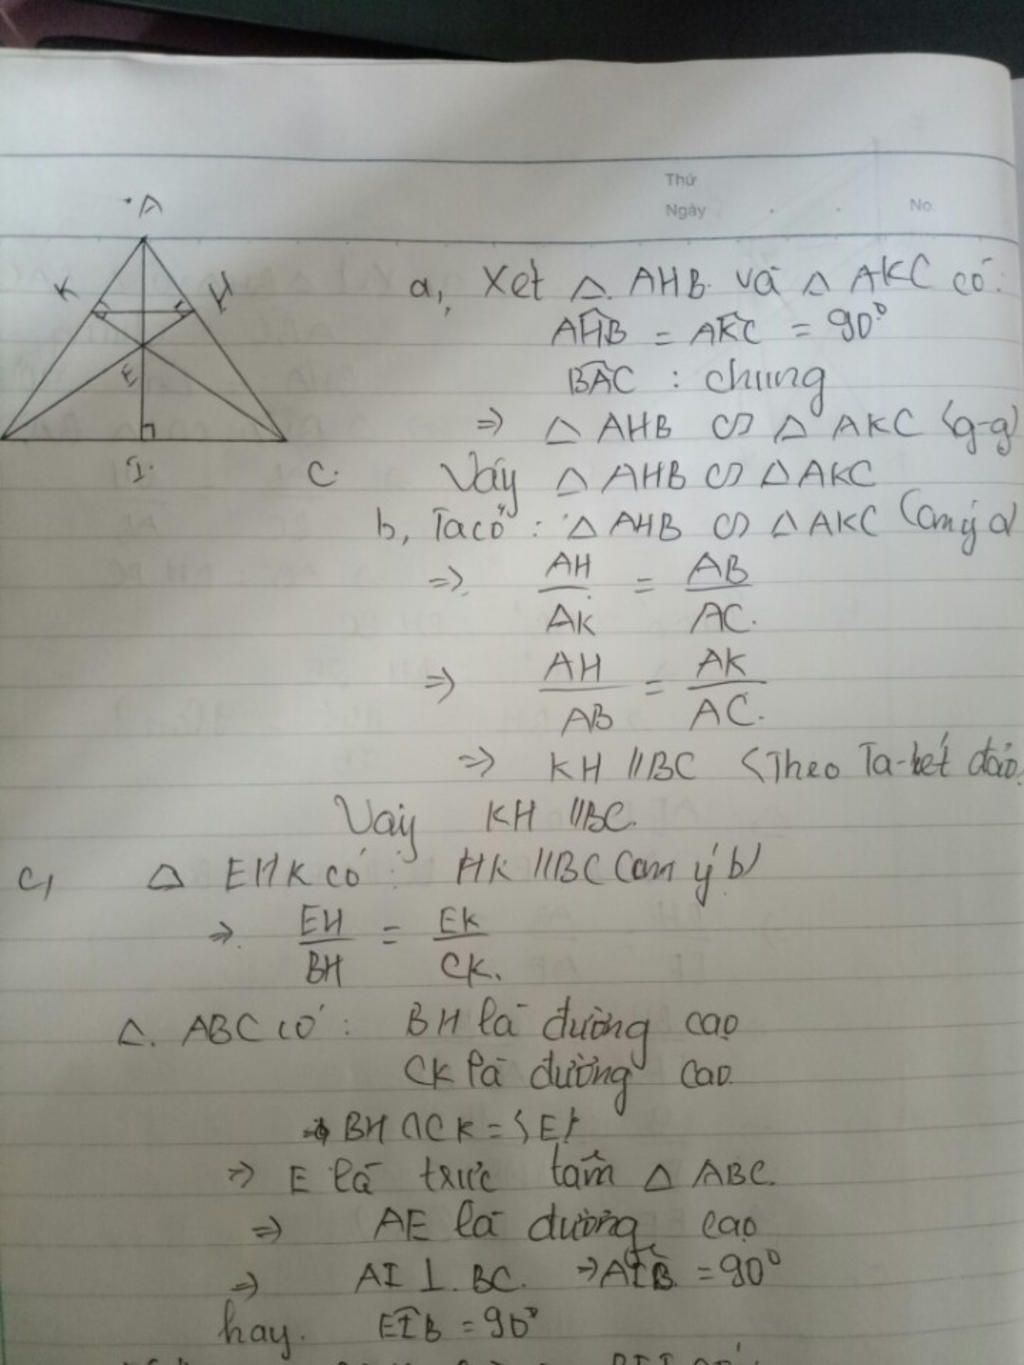 Thứ
Ngày No.
A
K H
E
I C
a, Xét △ AHB và △ AKC có:
AHB = AKC = 90°
BAC : chung
⇒ △ AHB ∽ △ AKC (g-g)
Vậy △ AHB ∽ △ AKC
b, Ta có : △ AHB ∽ △ AKC (cm ý a)
⇒ AH/AK = AB/AC.
⇒ AH/AB = AK/AC.
⇒ KH // BC (Theo Ta-lét đảo
Vậy KH // BC.
c, △ EHK có : HK // BC (cm ý b)
⇒ EH/BH = EK/CK.
△ ABC có : BH là đường cao
CK là đường cao
BH ∩ CK = {E}
⇒ E là trực tâm △ ABC.
⇒ AE là đường cao
⇒ AI ⊥ BC. ⇒ AIB = 90°
hay. EIB = 90°